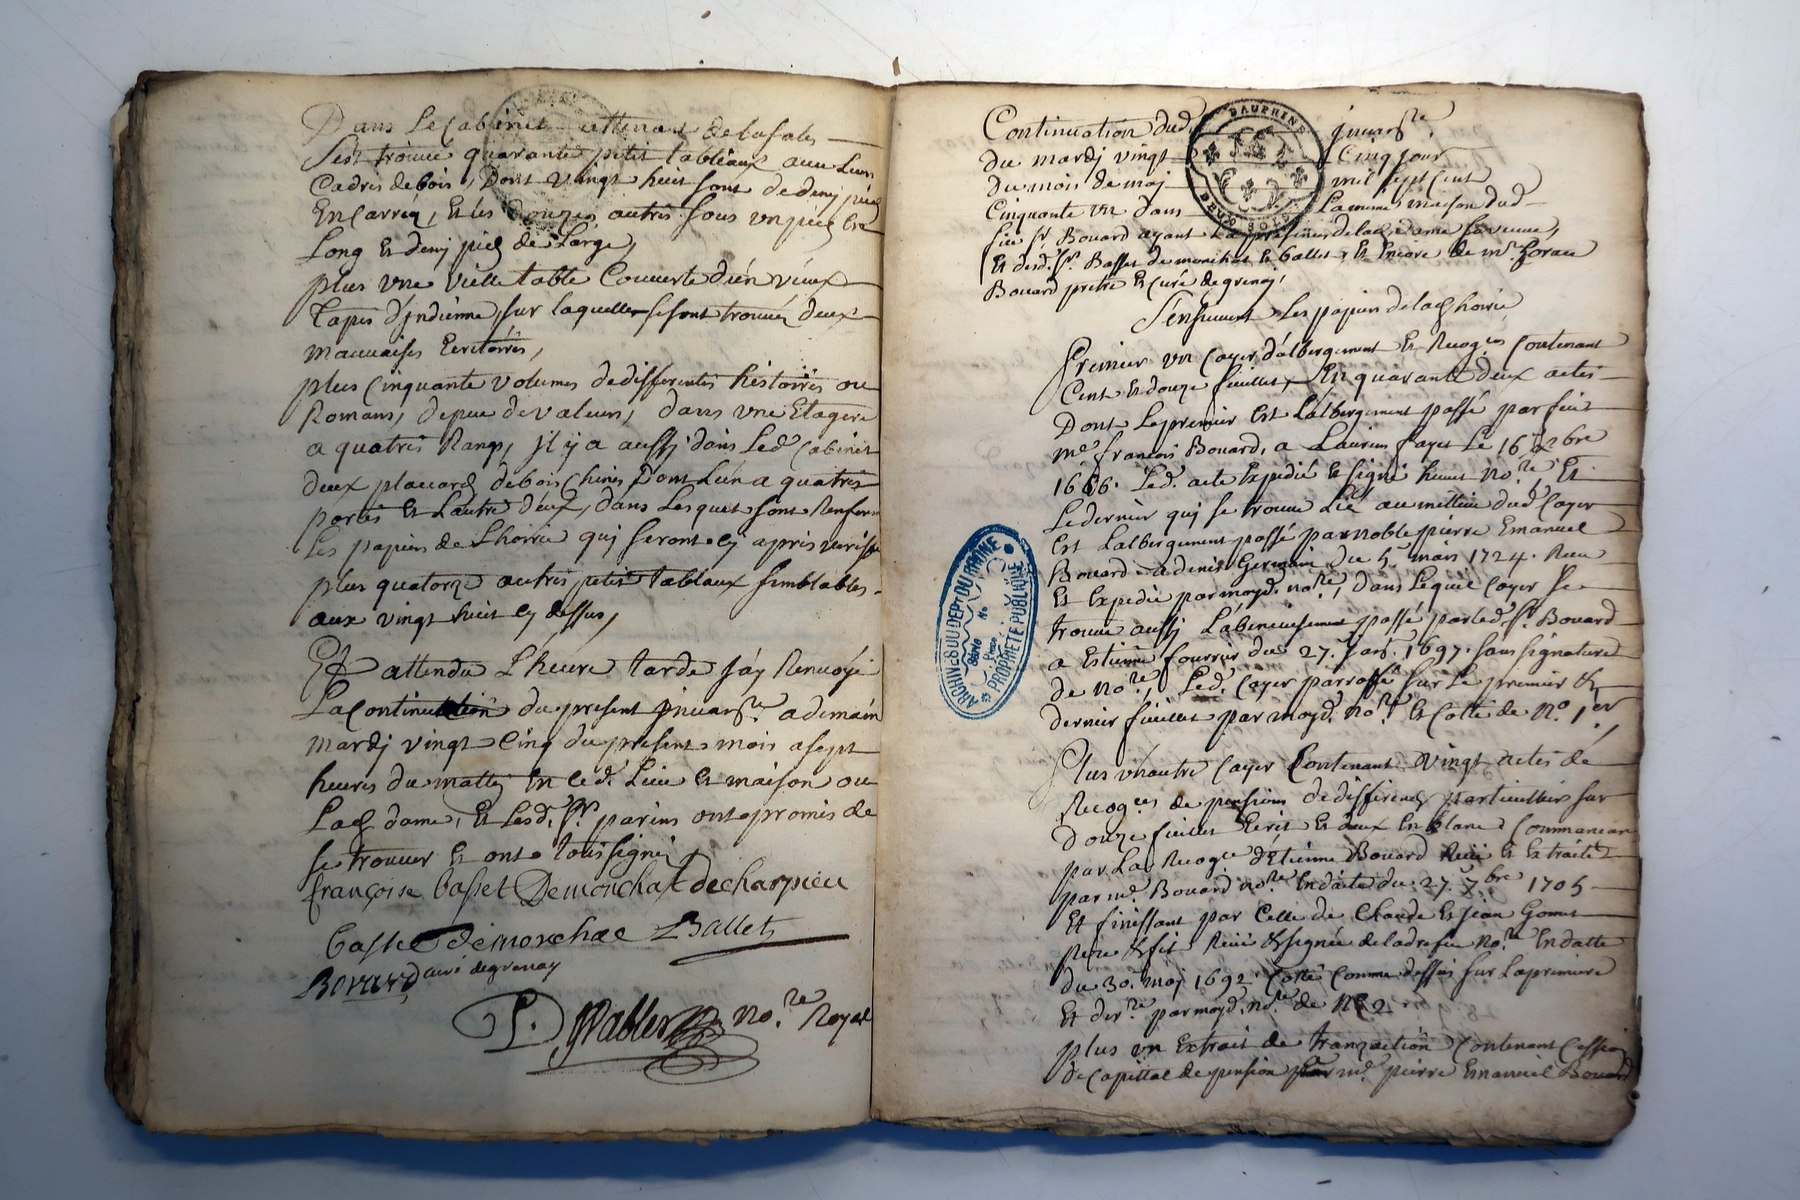 Dans Le Cabinet attenant de la sale
s'est trouvé quarante petit tableaux avec Leurs
Cadres de bois, Dont vingt huit sont de demy pied
En Carréq, Et les douzes autres sous un pied de
Long Et demj pied de Large,
plus une vielle table Couverte d'un vieux
Tapis d'jndienne, sur laquelle se sont trouvée deux
mauvaises Ecritoires,
plus Cinquante volumes de differentes histoires ou
Romans, de peu de valeurs, dans une Etagere
a quatres Rangs, jl y a aussj dans Led. Cabinet
deux placard de bois Chenes Dont L'un a quatres
portes Et L'autre d'eux, dans Lesquels sont Renfermé
Les papiers de L'hoirie qui seront cy apres
plus quatorze autres petit tablaux semblables
aux vingt huit cy dessus,
Et attendu L'heure tarde j'ay Renvoyé
La Continuation du present jnvare. a demain
mardj vingt Cinq du present mois a sept
heures du mattin En Led. Lieu Et maison ou
Lad. dame, Et Lesd. Srs. parens ont promis de
se trouver Et ont tous signés
françoise basset Demonchat de charpieu
basset demonchat Ballet
Bovard curé de grenay
P. no.re Royal
Continuation dud. jnvare.
du mardj vingt Cinq jour
du mois de maj mil sept Cent
Cinquante un dans La meme maison dud.
feu sr. Bouard ayant La presence de lad. dame sa veuve,
Et desd. srs. Basset de monchat Et ballet, Et Encore de mre.
Bouard pretre Et curé de grenay,
S'ensuivent Les papiers de lad. hoirie
Premier un Cayer d'albergement Et Recogces Contenant
Cent Et douze feuillets, En quarante deux actes
Dont Le premier Est L'albergement passé par feu
me. francois Bouard, a Laurens fayet Le 16 Xbre
1666. Led. acte Expedié Et signé no.re, Et
Le dernier qui se trouve Lié au millieu dud. Cayer
Est L'albergement passé par noble pierre Emanuel
Bouard a denis Germain Du 5. mars 1724. Receu
Et Expedié par moyd. no.re, dans Lequel Cayer se
trouve aussj passé par Led. Sr. Bouard
a Estienne fourrier du 27. janv. 1697. sans signature
de no.re, Led. Cayer parraffé sur Le premier &
dernier feuillet par moyd. no.re Et Cotté de No. 1er,
Plus un autre Cayer Contenant vingt actes de
Recogces de pensions de differends particulliers sur
Douze feuillets Ecrit Et deux En blanc Commencant
par La Recogce d'Etienne Bouard Recu Et Extraite
par me. Bouard no.re En datte du 27. 7bre 1705
Et finissant par Celle de Claude Et jean Gonet
Pere & fils Recue & signée de lad. feu no.re En datte
du 30. maj 1692 Cotté Comme dessus sur La premiere
Et der.re par moyd. no.re de No 2
plus un Extrait de tranzaction Contenant Cession
de Capittal de pension par me. pierre Emanuel Bouard
DAUPHINE
ARCHIVES DU DEPT DU RHONE
Série
No
Pièce
PROPRIÉTÉ PUBLIQUE